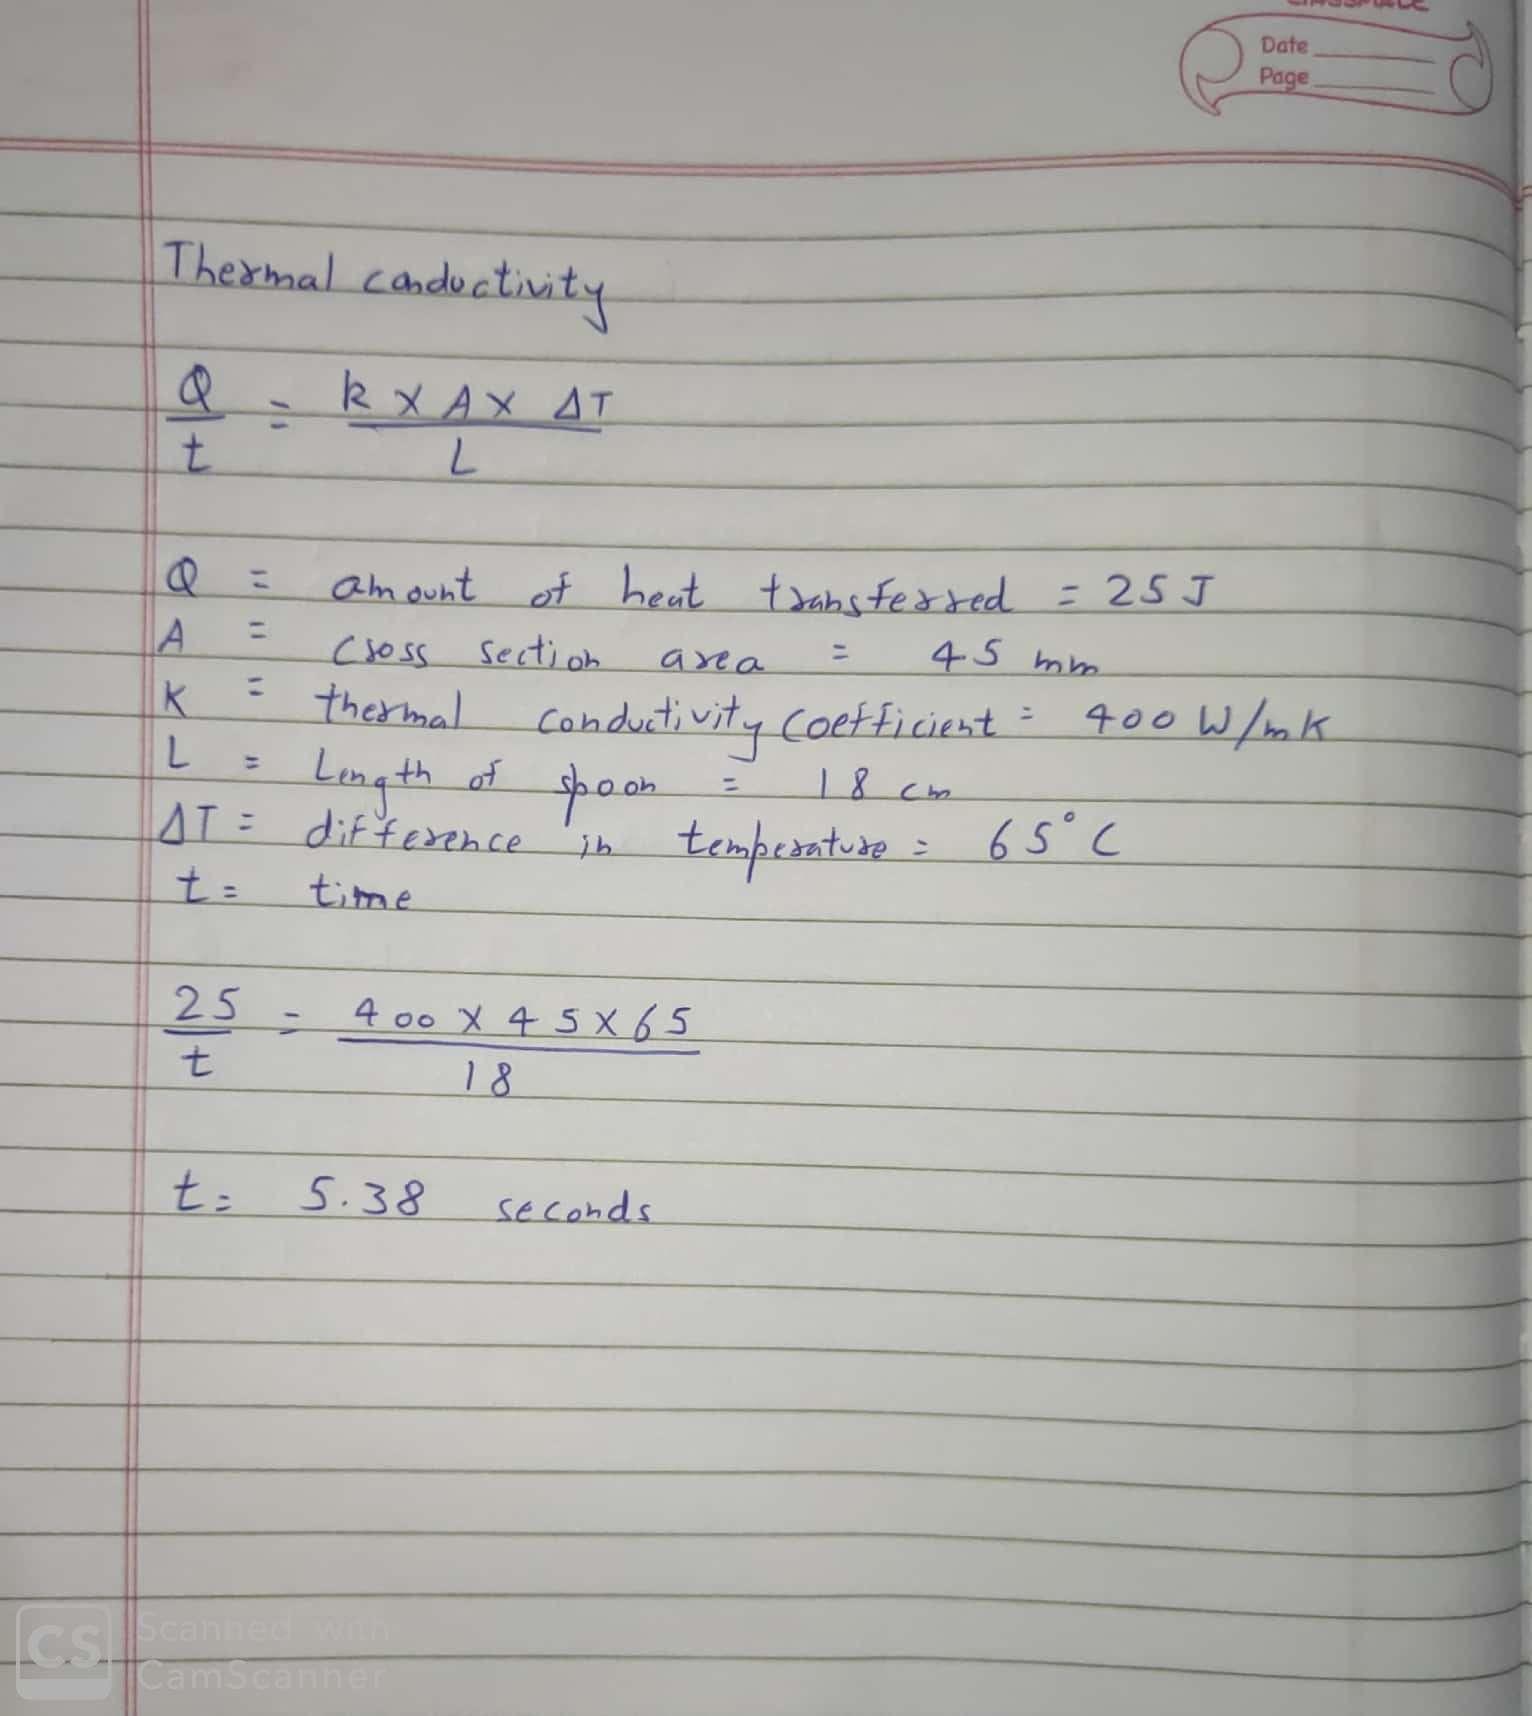 Date
Page
Thermal conductivity
Q/t = k x A x ΔT / L
Q = amount of heat transferred = 25 J
A = cross section area = 45 mm
K = thermal conductivity coefficient = 400 W/mK
L = Length of spoon = 18 cm
ΔT = difference in temperature = 65°C
t = time
25/t = 400 x 45 x 65 / 18
t = 5.38 seconds
CS Scanned with
CamScanner